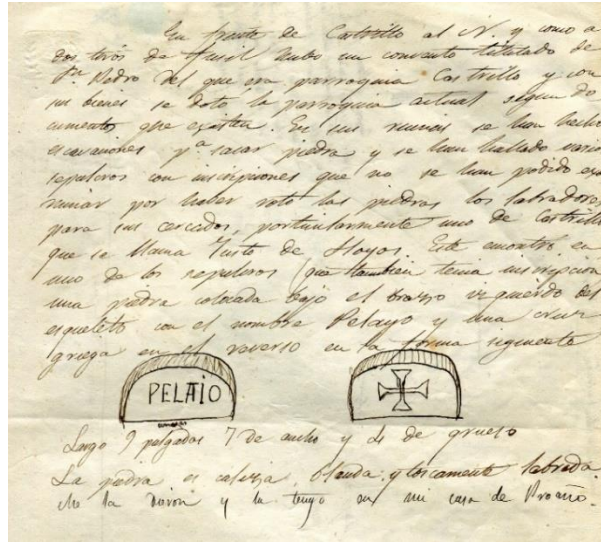 En frente de Castrillo al N. y como a
dos tiros de fusil hubo un convento titulado de
Sn. Pedro del que era parroquia Castrillo y con
sus bienes se dotó la parroquia actual segun do
cumentos que existen. En sus ruinas se han hecho
escavaciones pa. sacar piedra y se han hallado varios
sepulcros con inscripciones que no se han podido exa
minar por haber roto las piedras los labradores
para sus cercados, particularmente uno de Castrillo
que se llama Justo de Hoyos. Este encontró en
uno de los sepulcros (que tambien tenia inscripcion
una piedra colocada bajo el brazo izquierdo del
esqueleto con el nombre Pelayo y una cruz
griega en el reverso en la forma siguiente
PELAIO
Largo 9 pulgadas 7 de ancho y 4 de grueso
La piedra es caliza, blanda y toscamente labrada.
Me la dieron y la tengo en mi casa de Proaño.